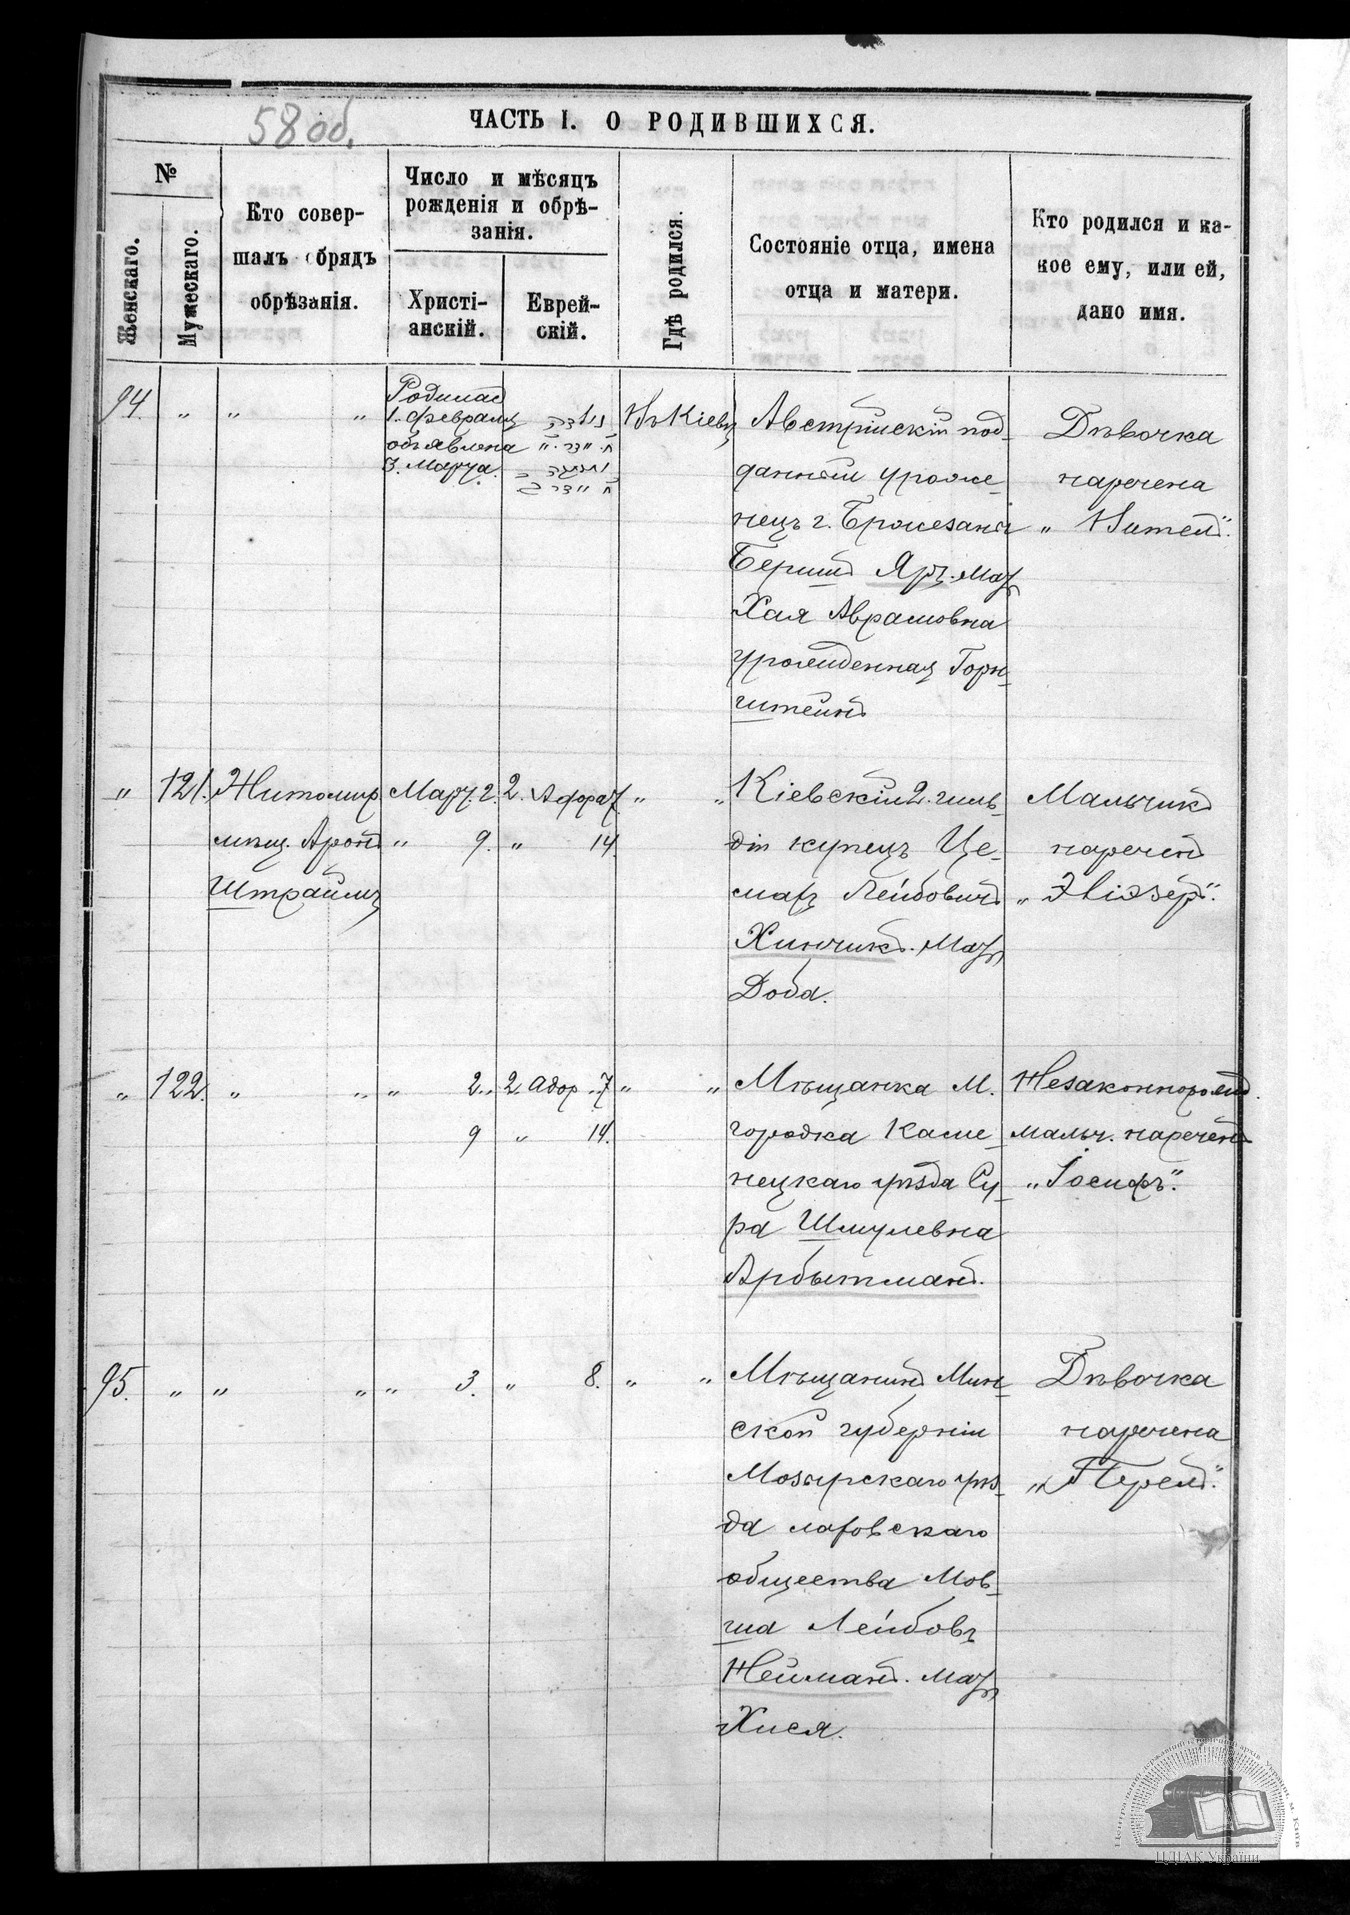 58 об.
ЧАСТЬ I. О РОДИВШИХСЯ.
№
Женскаго.
Мужескаго.
Кто совер-
шалъ обрядъ
обрѣзанія.
Число и мѣсяцъ
рожденія и обрѣ-
занія.
Христі-
анскій.
Еврей-
скій.
Гдѣ родился.
Состояніе отца, имена
отца и матери.
Кто родился и ка-
кое ему, или ей,
дано имя.
94. " " "
Родилась
1. февраля
объявлена
3. Марта.
Въ Кіевѣ
Австрійскій под-
данный уроже-
нецъ г.
Бершъ Яръ. мать
Хая Аврамовна
урожденная Горн-
штейнъ
Дѣвочка
наречена
"
" 121. Житомир
мѣщ. Аронъ
Штраймъ
Март. 2.
" 9.
2. Адора 7.
" 14.
" "
Кіевскій 2. гиль-
діи купецъ Це-
махъ Лейбовичъ
Хинчикъ. Мать
Доба.
Мальчикъ
нареченъ
" 122. " " " 2. 2. Адор. 7
9 " 14.
" "
Мѣщанка М.
городка Каме-
нецкаго уѣзда Су-
ра Шмулевна
Арбытманъ.
Незаконнорожд.
мальч. нареченъ
„Іосифъ“.
95. " " " " 3. " 8. " "
Мѣщанинъ Мин-
ской губерніи
Мозырскаго уѣз-
да
общества Мов-
ша Лейбовъ
Нейманъ. мать
Хися.
Дѣвочка
наречена
„Перель“.
ЦДІАК України